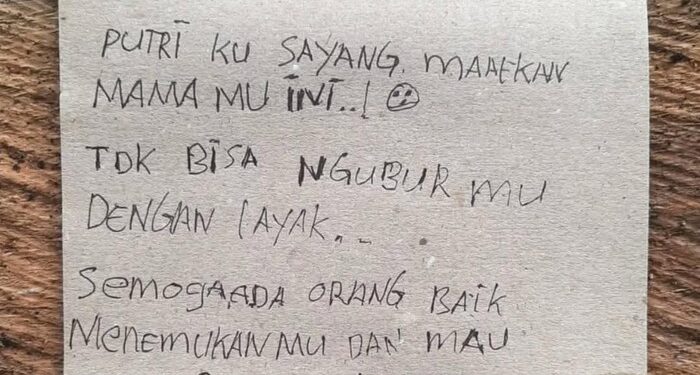 PUTRI KU SAYANG. MAAFKAN
MAMA MU INI..!
TDK BISA NGUBUR MU
DENGAN LAYAK...
SEMOGA ADA ORANG BAIK
MENEMUKAN MU DAN MAU